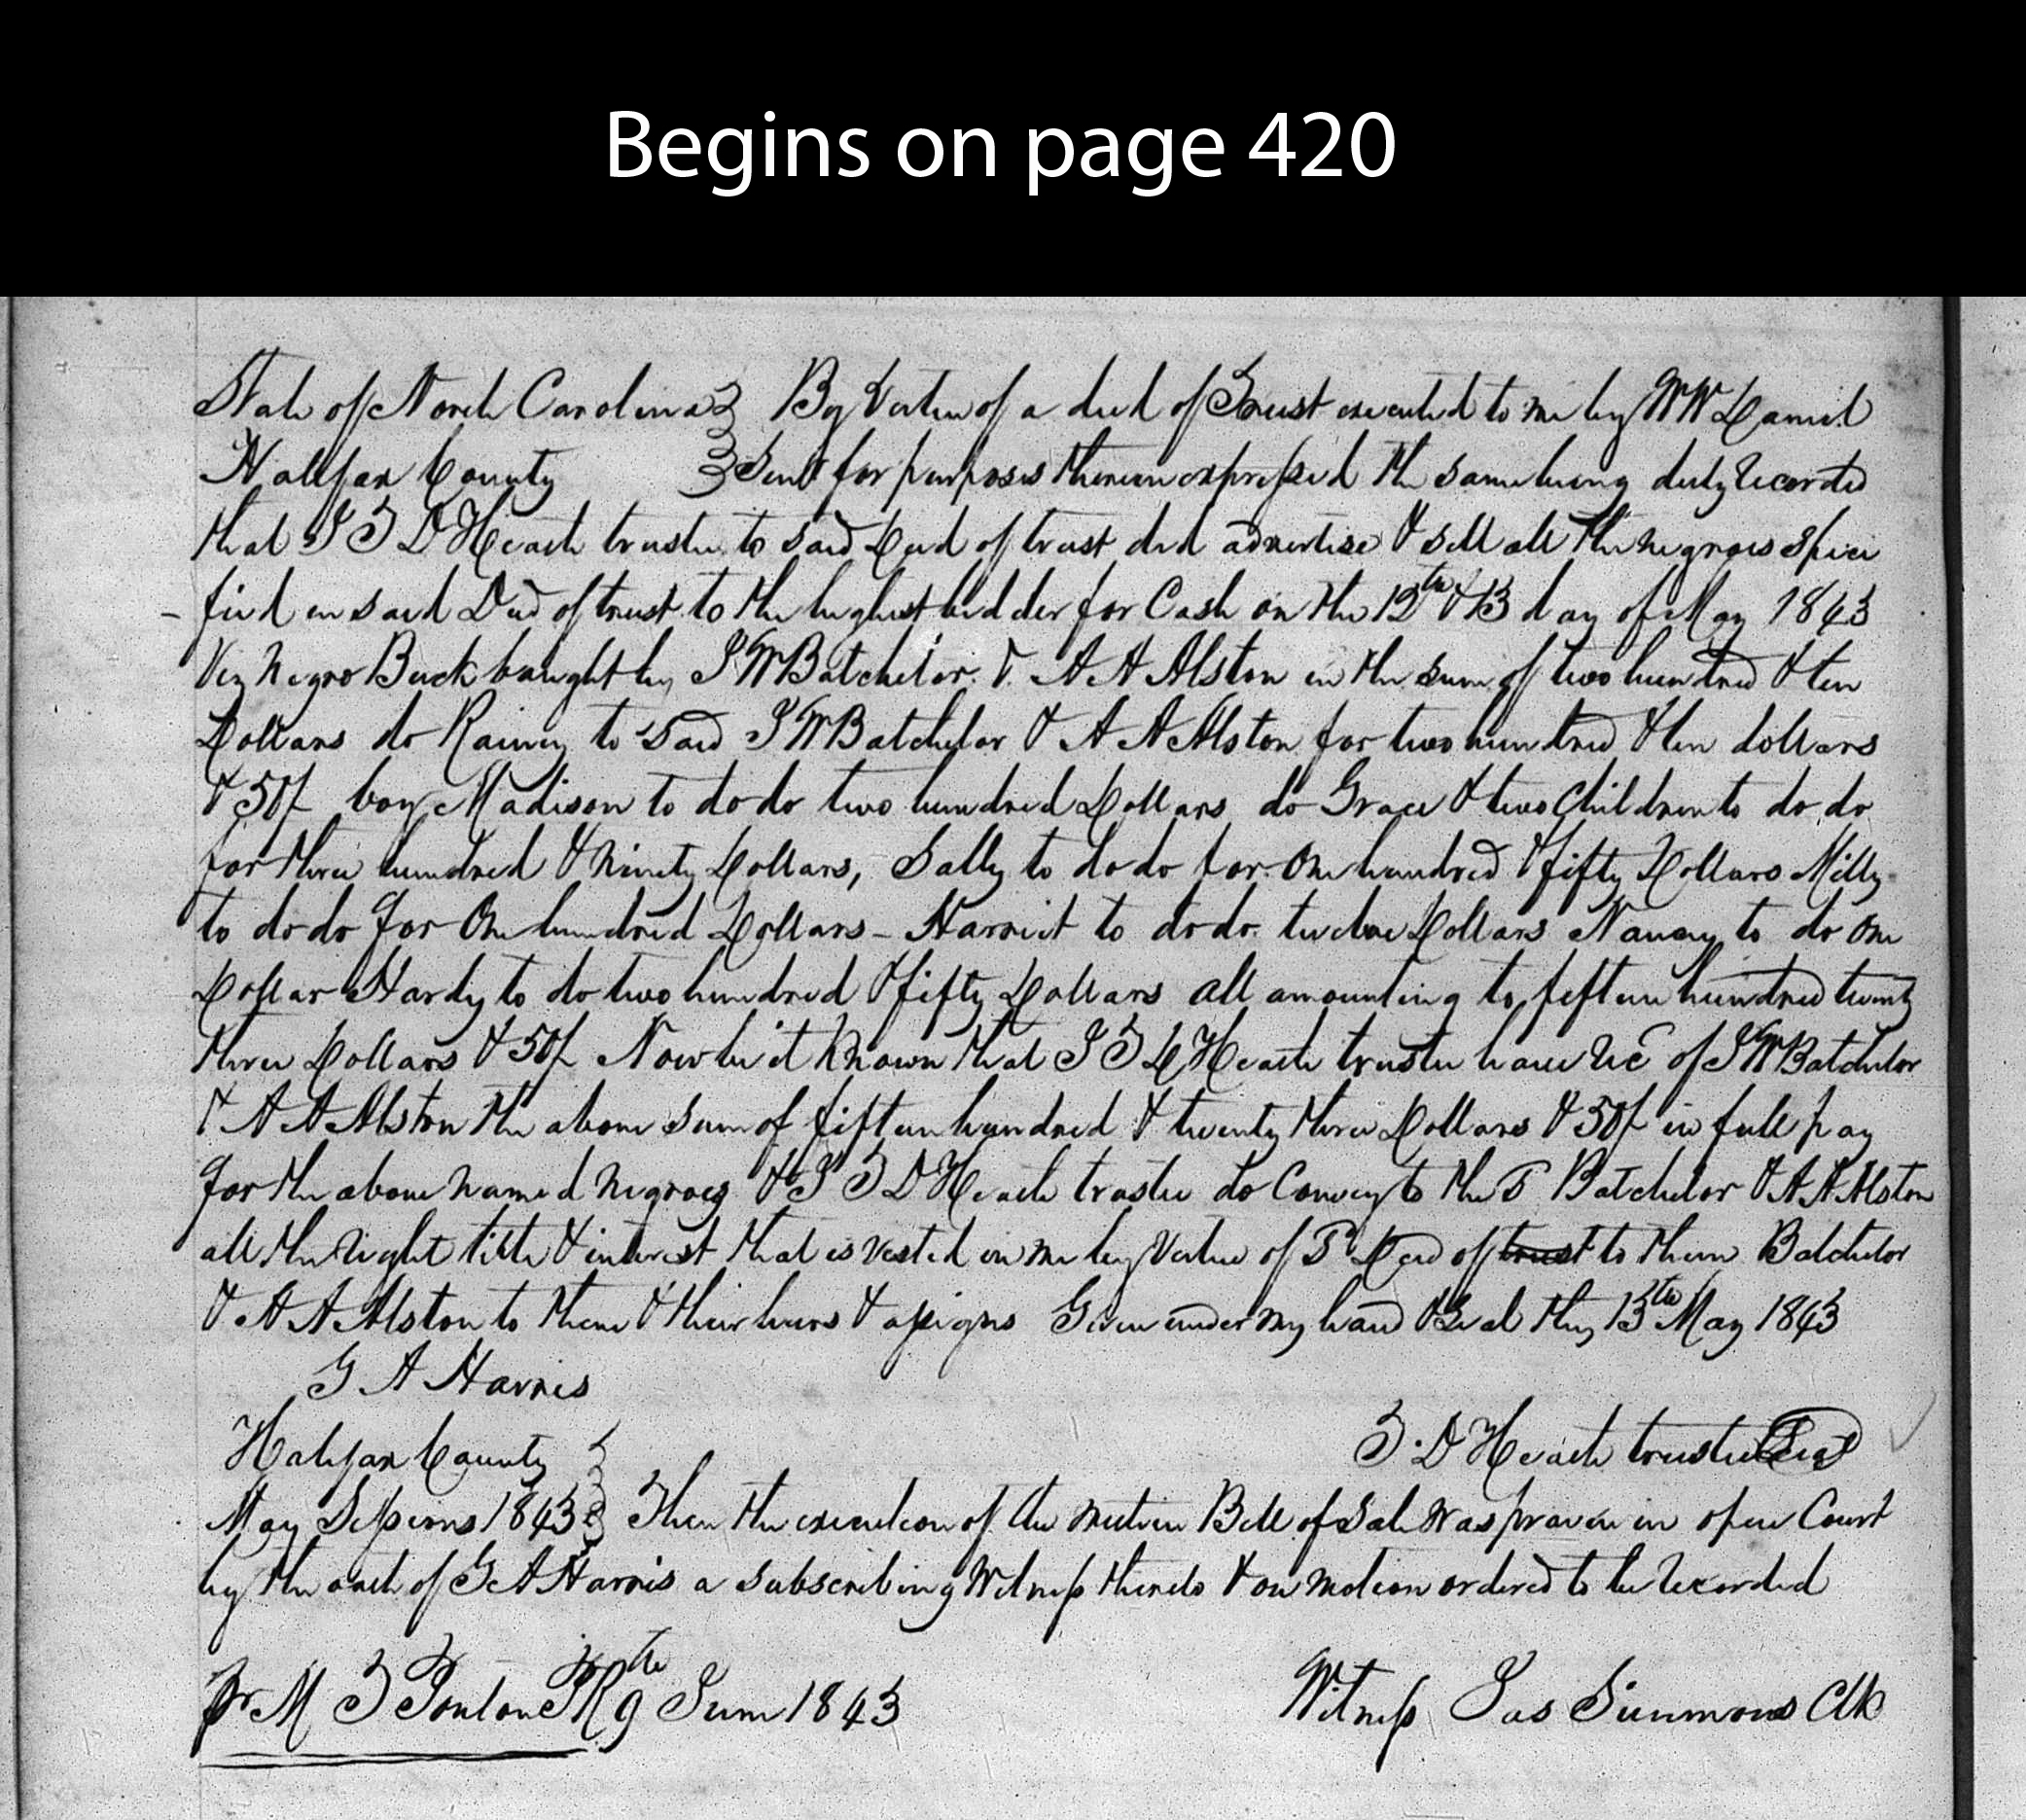 Begins on page 420
State of North Carolina } By Virtue of a deed of Trust executed to me by W W Daniel
Halifax County } Senr for purposes therein expressed the same being duly Recorded
that I T D Heath trustee to said Deed of trust did advertise & sell all the negroes speci
- fied in said Deed of trust to the highest bidder for Cash on the 12th & 13 day of May 1843
Viz Negro Buck baught by J W Batchelor & A A Alston in the sum of two hundred & ten
Dollars do Rainey to said J W Batchelor & A A Alston for two hundred & ten dollars
& 50/ boy Madison to do do two hundred Dollars do Grace & two Children to do do
for three hundred & Ninety Dollars, Sally to do do for One hundred & fifty Dollars Milly
to do do for One hundred Dollars - Harriet to do do twelve Dollars Nancy to do One
Dollar Hardy to do two hundred & fifty Dollars all amounting to fifteen hundred twenty
three Dollars & 50/ Now be it Known that I T D Heath trustee have Rec of J W Batchelor
& A A Alston the above sum of fifteen hundred & twenty three Dollars & 50/ in full pay
for the above named negroes & I T D Heath trustee do Convey to the S Batchelor & A A Alston
all the Right title & interest that is vested in me by Virtue of Sd Deed of trust to them Batchelor
& A A Alston to them & their heirs & assigns Given under my hand & Seal this 13th May 1843
G A Harris
Halifax County } T. D Heath trustee Seal
May Sessions 1843 } Then the execution of the within Bill of Sale was proven in open Court
by the oath of G A Harris a subscribing Witness thereto & on motion ordered to be Recorded
pr M T Ponton PR 9th June 1843 Witness Jas Simmons Clk